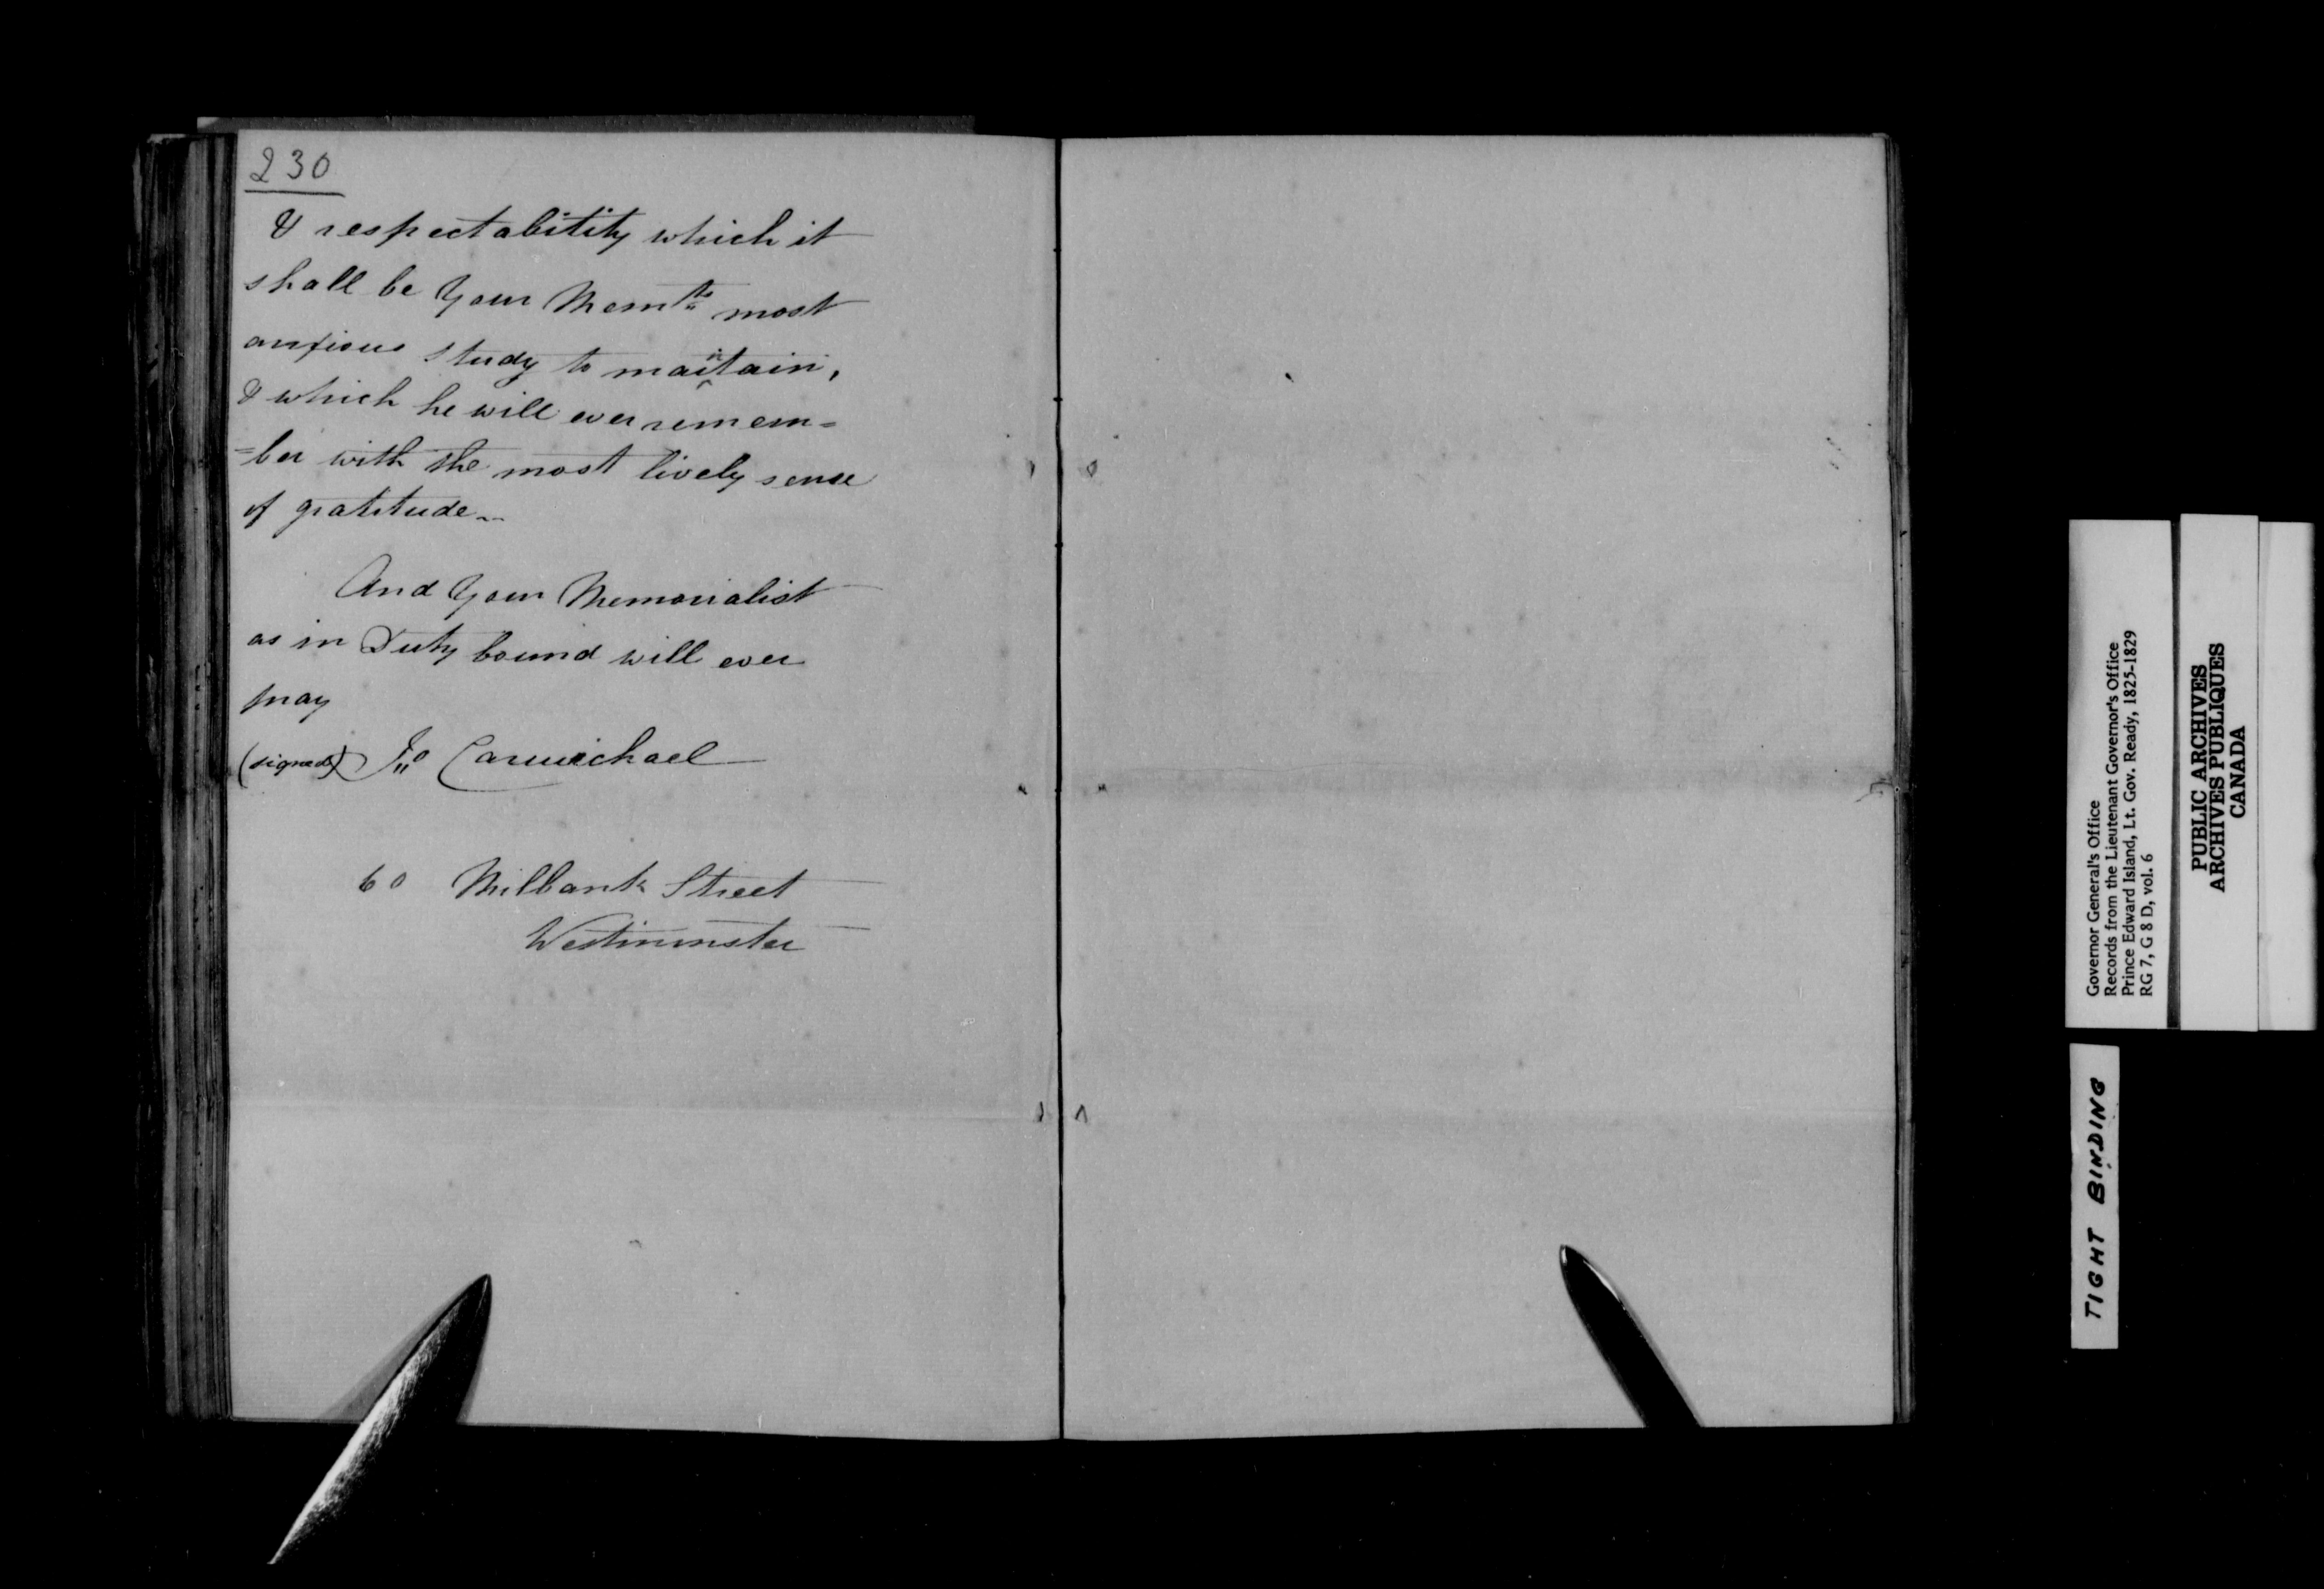 230
& respectability which it
shall be Your Mem.ts most
anxious study to maintain,
& which he will ever remem=
=ber with the most lively sense
of gratitude
And Your Memorialist
as in Duty bound will ever
pray
(signed) Jno Carmichael
60 Milbank Street
Westminster
Governor General's Office
Records from the Lieutenant Governor's Office
Prince Edward Island, Lt. Gov. Ready, 1825-1829
RG 7, G 8 D, vol. 6
PUBLIC ARCHIVES
ARCHIVES PUBLIQUES
CANADA
TIGHT BINDING